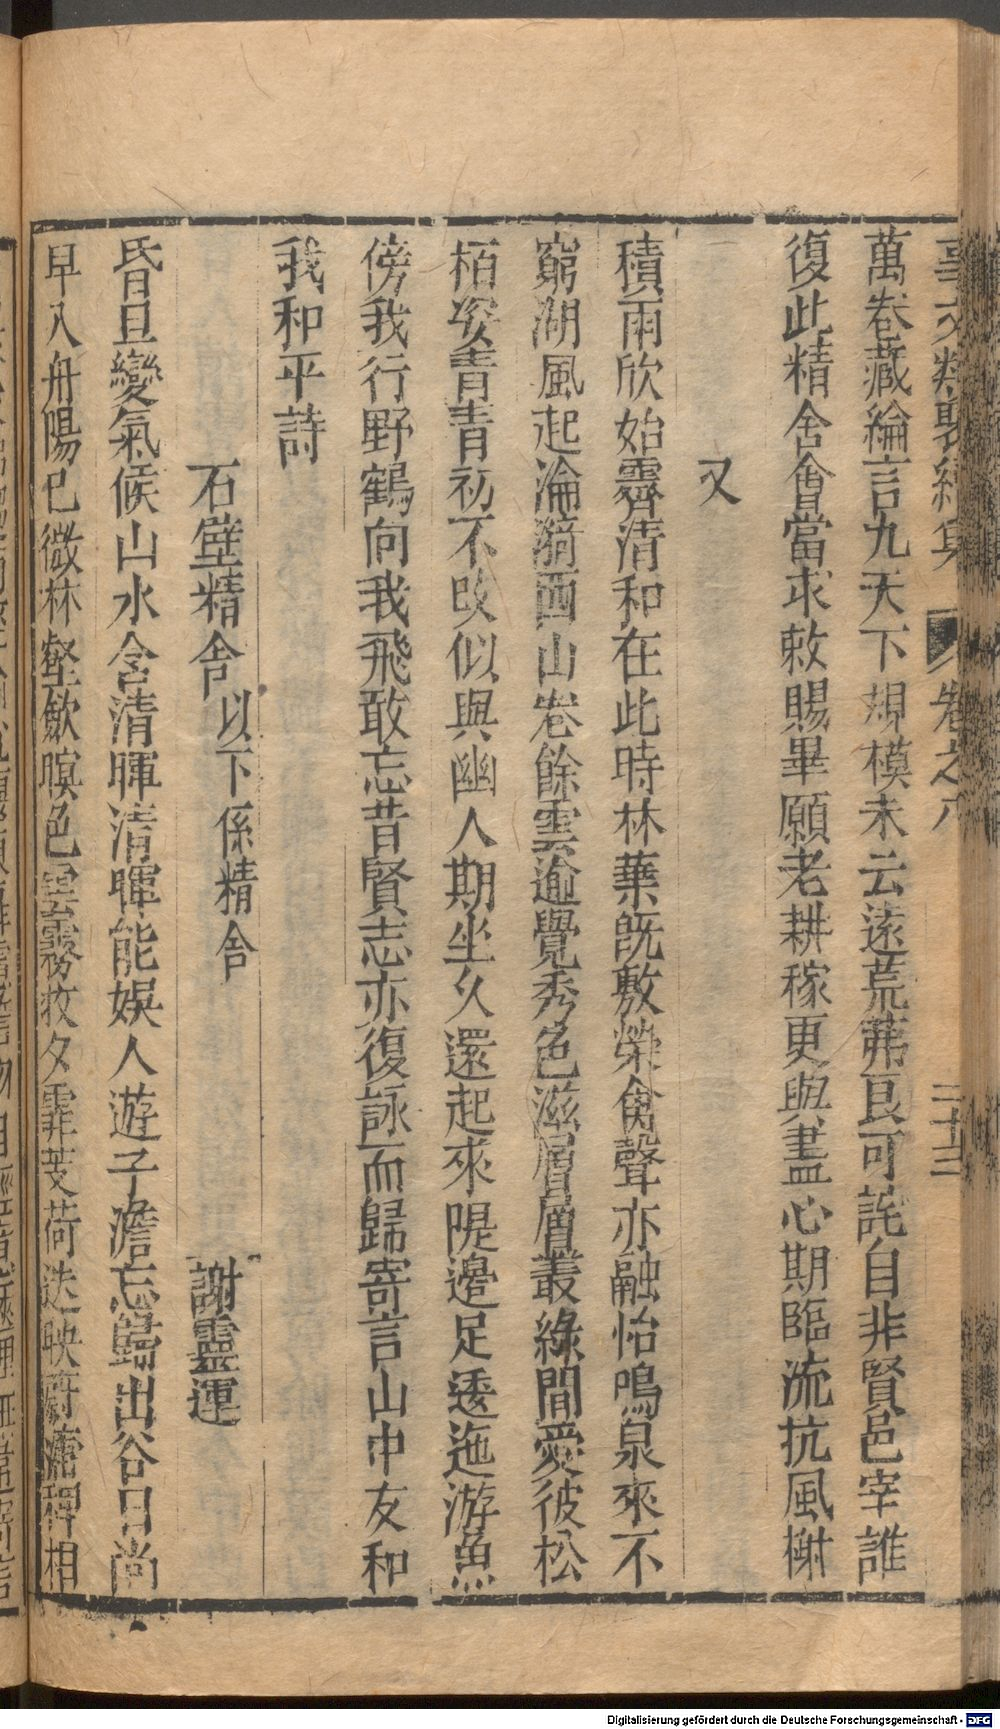 事文類聚續集 卷之八 二十三
萬卷藏綸言九天下規模未云遠荒茀良可詫自非賢邑宰誰
復此精舍會當求敕賜畢願老耕稼更與盡心期臨流抗風榭
又
積雨欣始霽清和在此時林葉旣敷榮禽聲亦融怡鳴泉來不
窮湖風起淪漪西山卷餘雲逾覺秀色滋層層叢綠間愛彼松
栢姿青青初不改似與幽人期坐久還起來隄邊足逶迤游魚
傍我行野鶴向我飛敢忘昔賢志亦復詠而歸寄言山中友和
我和平詩
石壁精舍 以下係精舍 謝靈運
昏旦變氣候山水含清暉清暉能娛人遊子澹忘歸出谷日尚
早入舟陽已微林壑歛暝色雲霧收夕霏芰荷迭映蔚蒲稗相
Digitalisierung gefördert durch die Deutsche Forschungsgemeinschaft - DFG